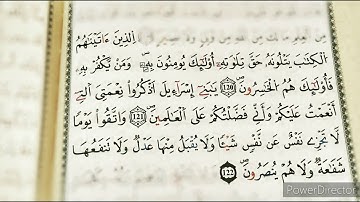 مِنَ الْعِلْمِ مَا لَكَ مِنَ اللَّهِ مِنْ وَلِيٍّ وَلَا نَصِيرٍ (120) الَّذِينَ ءَاتَيْنَٰهُمُ
الْكِتَٰبَ يَتْلُونَهُۥ حَقَّ تِلَاوَتِهِۦٓ أُو۟لَٰٓئِكَ يُؤْمِنُونَ بِهِۦ ۗ وَمَن يَكْفُرْ بِهِۦ
فَأُو۟لَٰٓئِكَ هُمُ الْخَٰسِرُونَ (120) يَٰبَنِىٓ إِسْرَٰٓءِيلَ اذْكُرُوا۟ نِعْمَتِىَ الَّتِىٓ
أَنْعَمْتُ عَلَيْكُمْ وَأَنِّى فَضَّلْتُكُمْ عَلَى الْعَٰلَمِينَ (121) وَاتَّقُوا۟ يَوْمًا
لَّا تَجْزِى نَفْسٌ عَن نَّفْسٍ شَيْـًٔا وَلَا يُقْبَلُ مِنْهَا عَدْلٌ وَلَا تَنفَعُهَا
شَفَٰعَةٌ وَلَا هُمْ يُنصَرُونَ (122)
PowerDirector